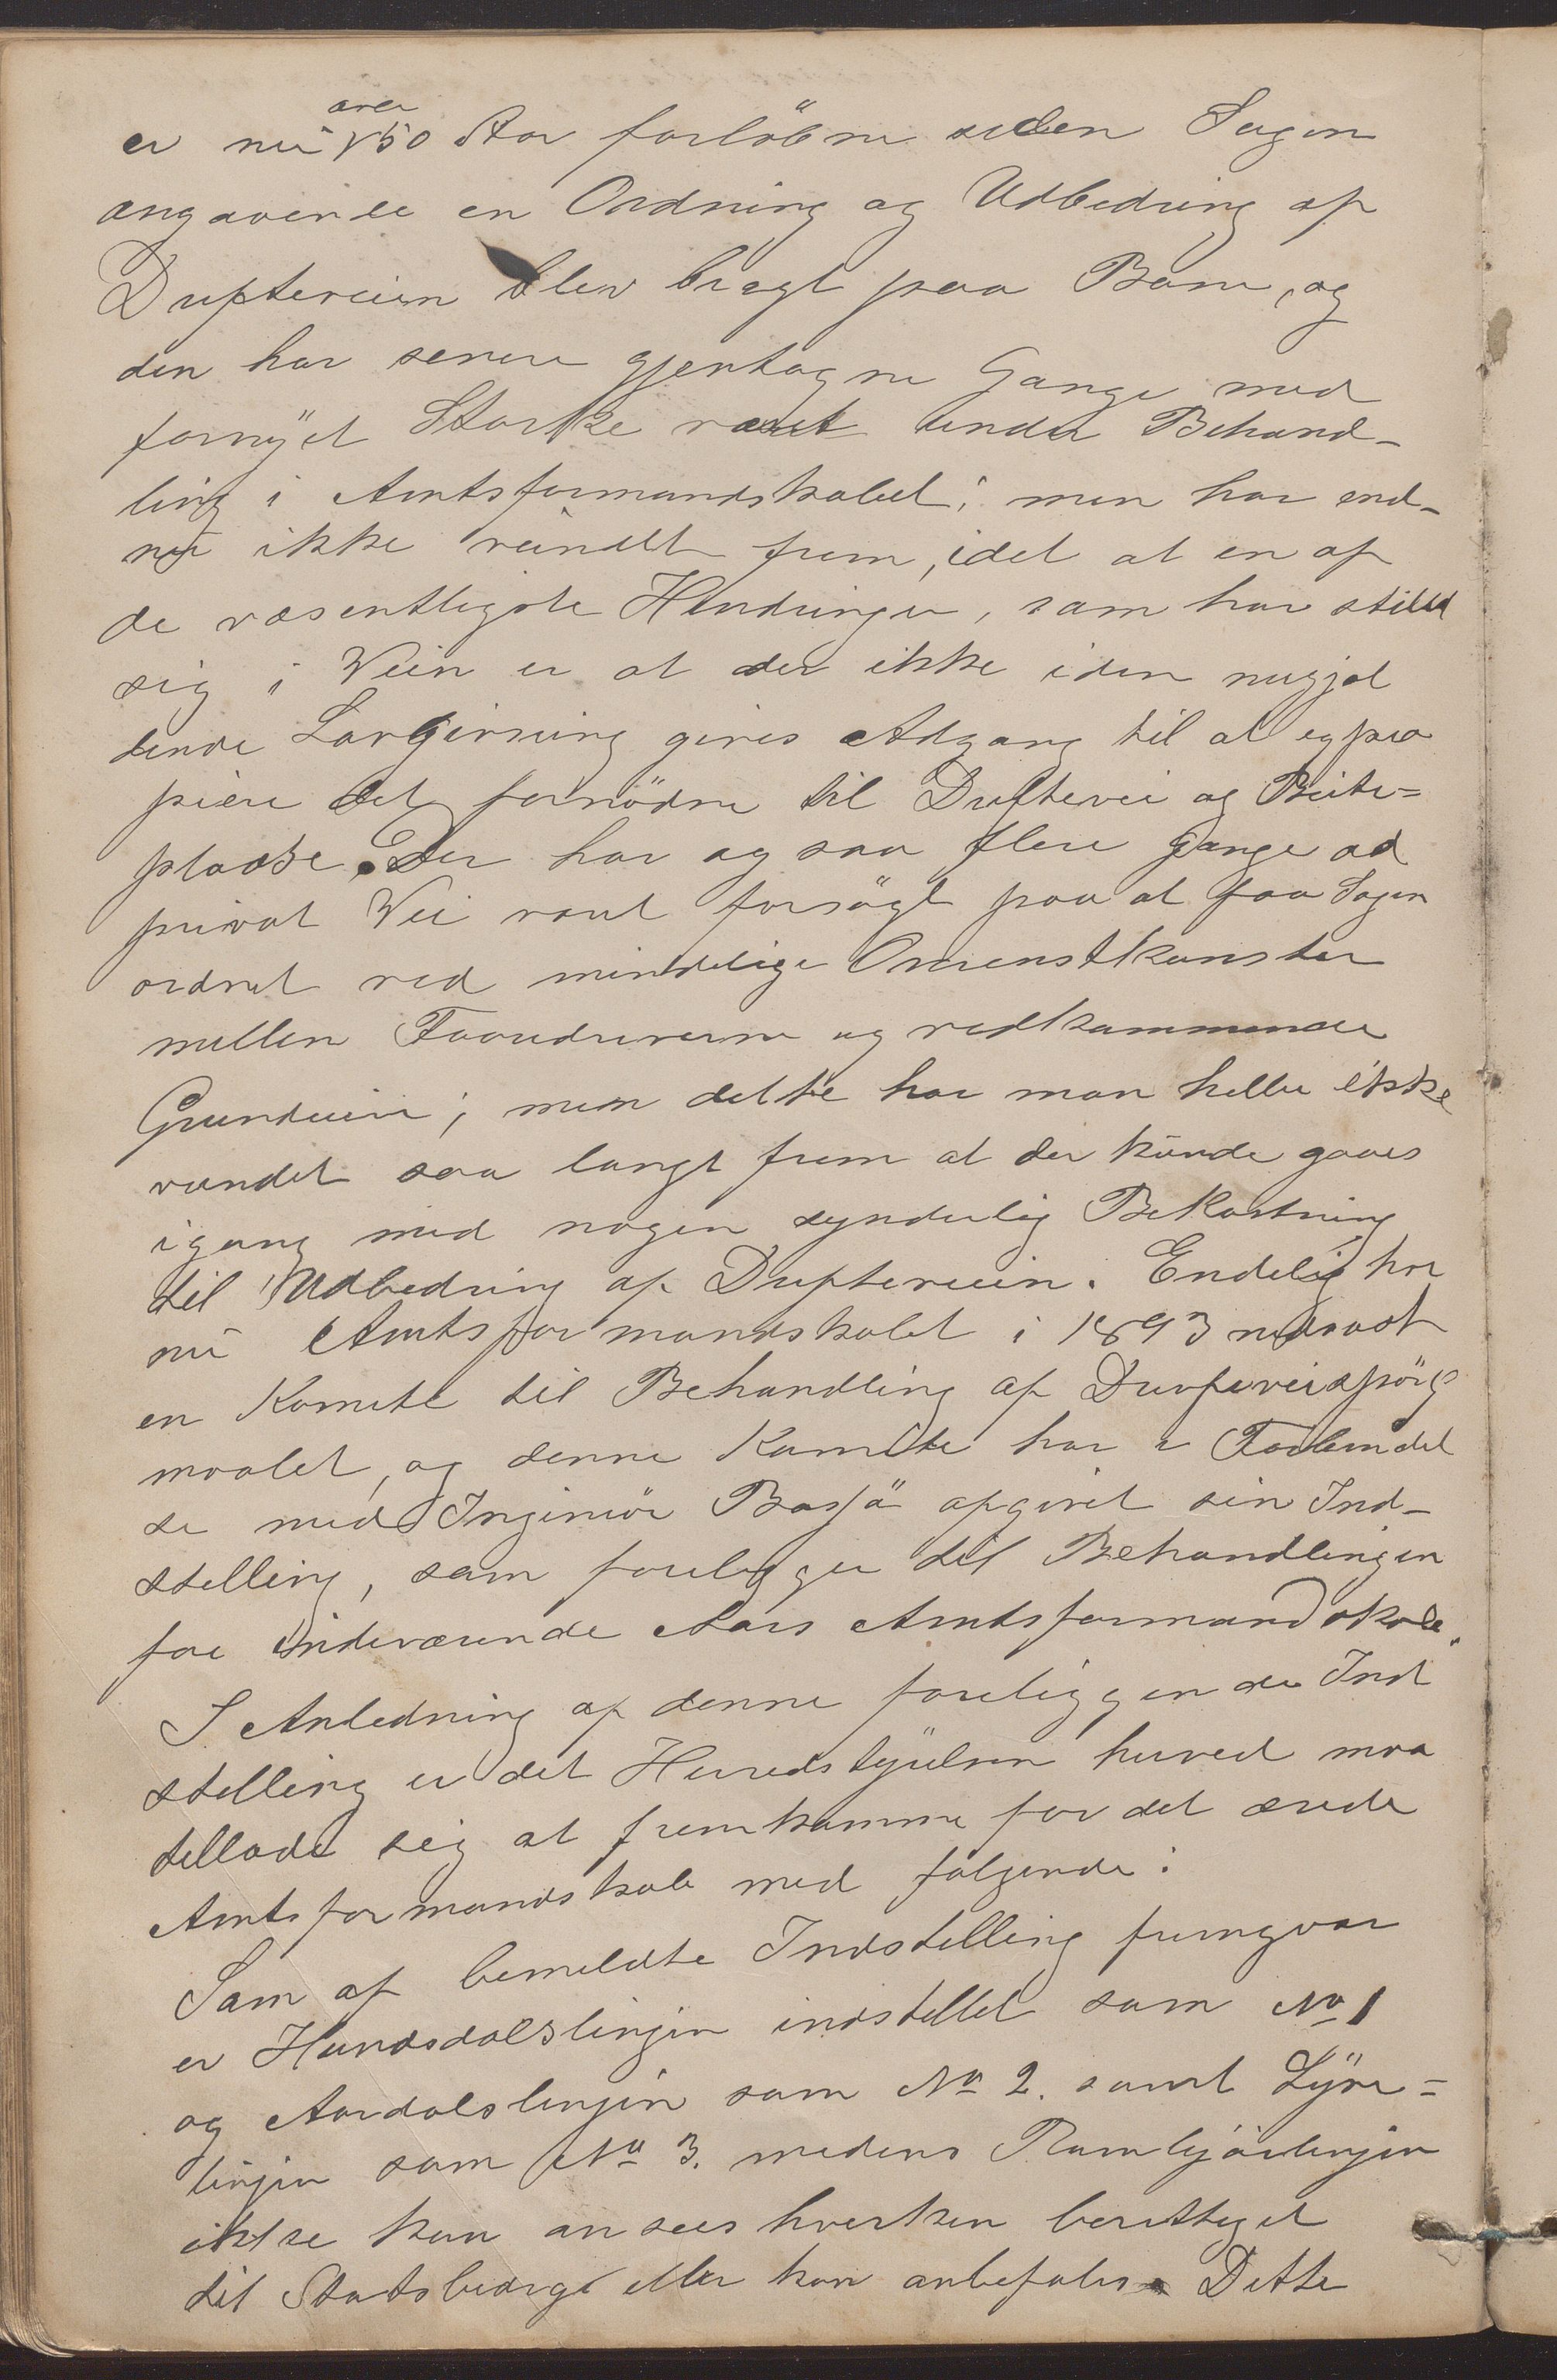 er nu over 50 Aar forløbne siden Sagen
angaaende en Ordning og Udbedring af
Drifteveien blev bragt paa Bane, og
den har senere gjentagne Gange med
fornyet Styrke været under Behand-
ling i Amtsformandskabet; men har end-
nu ikke vundet frem, idet at en af
de væsentligste Hindringer, som har stillet
sig i Veien er at der ikke i den nugjæl
dende Lovgivning gives Adgang til at expro
priere det fornødne til Driftevei og Beite-
pladse. Der har og saa flere Gange ad
privat Vei været forsøgt paa at faa Sagen
ordnet ved mindelige Overenskomster
mellem Faaredriverne og vedkommende
Grundeiere; men dette har man heller ikke
vundet saa langt frem at der kunde gaaes
igang med nogen synderlig Bekostning
til Udbedring af Drifteveien. Endelig har
nu Amtsformandskabet i 1893 nedsat
en Komite til Behandling af Drifteveispørgs
maalet, og denne Komite har i Forbindel
se med Ingeniør Barsjø afgivet sin Ind-
stilling, som foreligger til Behandlingen
for indeværende Aars Amtsformandskab.
I Anledning af denne foreliggende Ind
stilling er det Herredstyrelsen herved maa
tillade sig at fremkomme for det ærede
Amtsformandskab med følgende:
Som af bemeldte Indstilling fremgaar
er Hundsdalslinjen indstillet som No 1
og Aardalslinjen som No 2. samt Lyse-
linjen som No 3. medens Ramlijøslinjen
ikke kan ansees hverken berettiget
til Statsbidrag eller kan anbefales. Dette